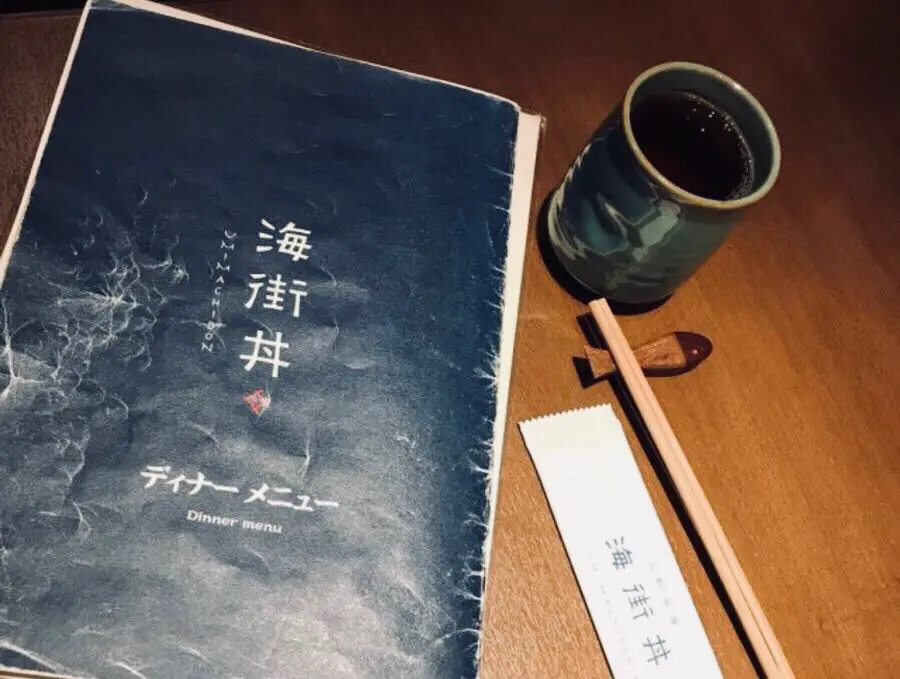 海街丼
UMIMACHI DON
ディナー メニュー
Dinner menu
海街丼